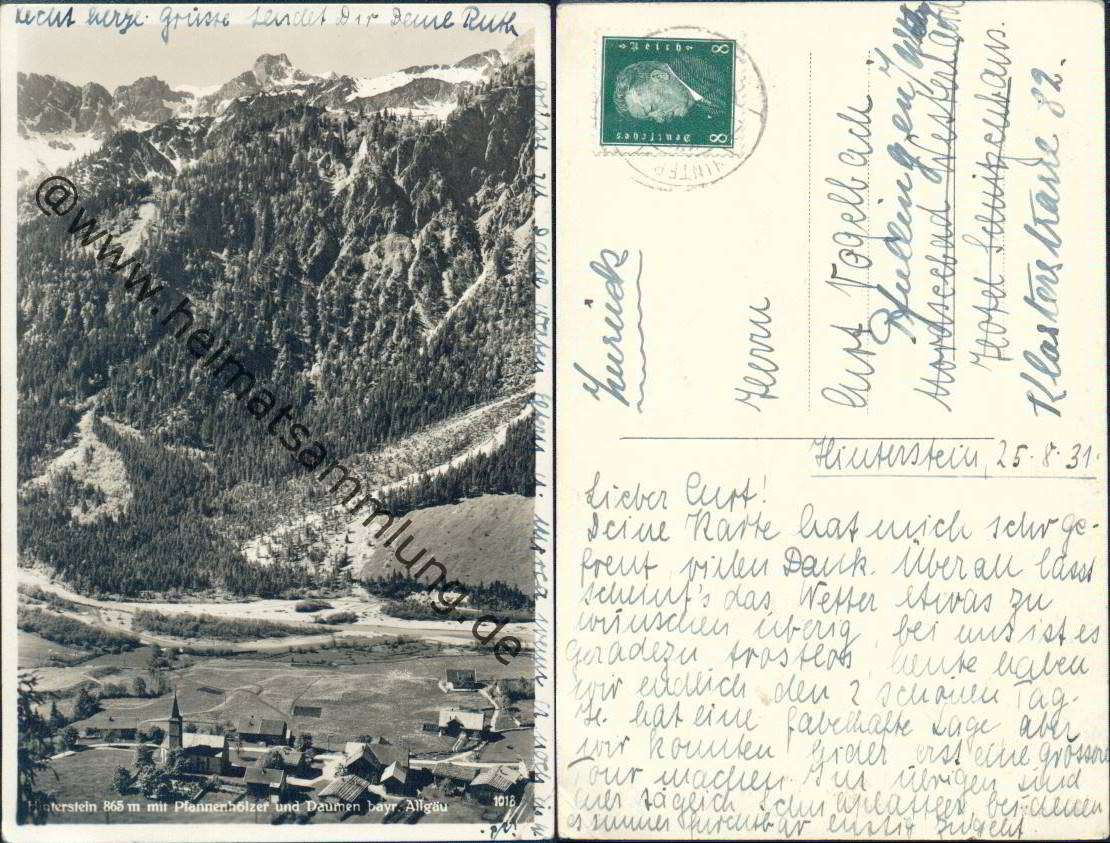 recht herzl. Grüsse sendet Dir Deine Ruth
@www.heimatsammlung.de
Hinterstein 865 m mit Pfannenhölzer und Daumen bayr. Allgäu
1018
8 Reich 8
Deutsches
HINTER
Zurück
Herrn
Curt Vogelbach
Nordseebad Westerland
Hotel Schützenhaus.
Klosterstraße 82.
Hinterstein, 25.8.31.
Lieber Curt!
Deine Karte hat mich sehr ge-
freut, vielen Dank. Überall lässt
scheint's das Wetter etwas zu
wünschen überig, bei uns ist es
geradezu trostlos, heute haben
wir endlich den 2 schönen Tag.
H. hat eine fabelhafte Lage aber
wir konnten leider erst eine grössere
Tour machen. Im übrigen sind
hier täglich Schuhplattler bei denen
es immer furchtbar lustig zugeht.